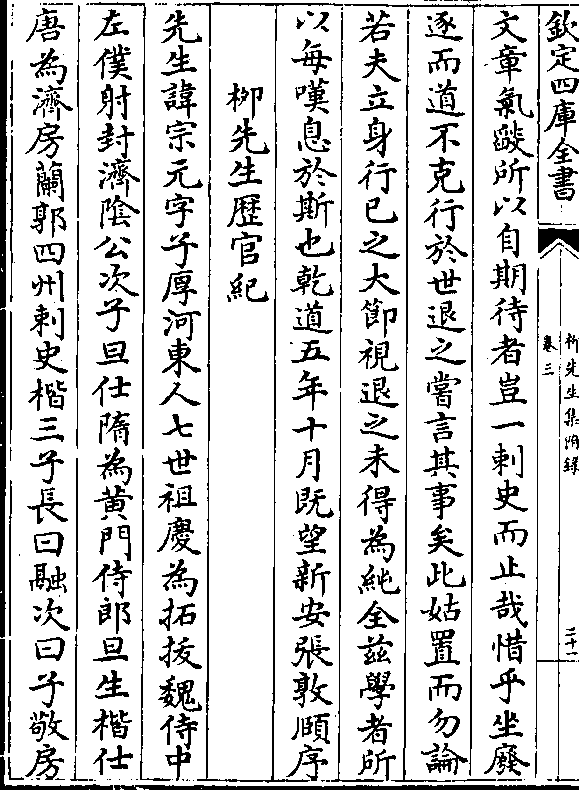 欽定四庫全書
柳先生集附錄
卷三
三十一
文章氣燄所以自期待者豈一刺史而止哉惜乎坐廢
逐而道不克行於世退之嘗言其事矣此姑置而勿論
若夫立身行已之大節視退之未得為純全茲學者所
以每嘆息於斯也乾道五年十月既望新安張敦頤序
柳先生歴官紀
先生諱宗元字子厚河東人七世祖慶為拓拔魏侍中
左僕射封濟陰公次子旦仕隋為黃門侍郎旦生楷仕
唐為濟房蘭郭四州刺史楷三子長曰融次曰子敬房